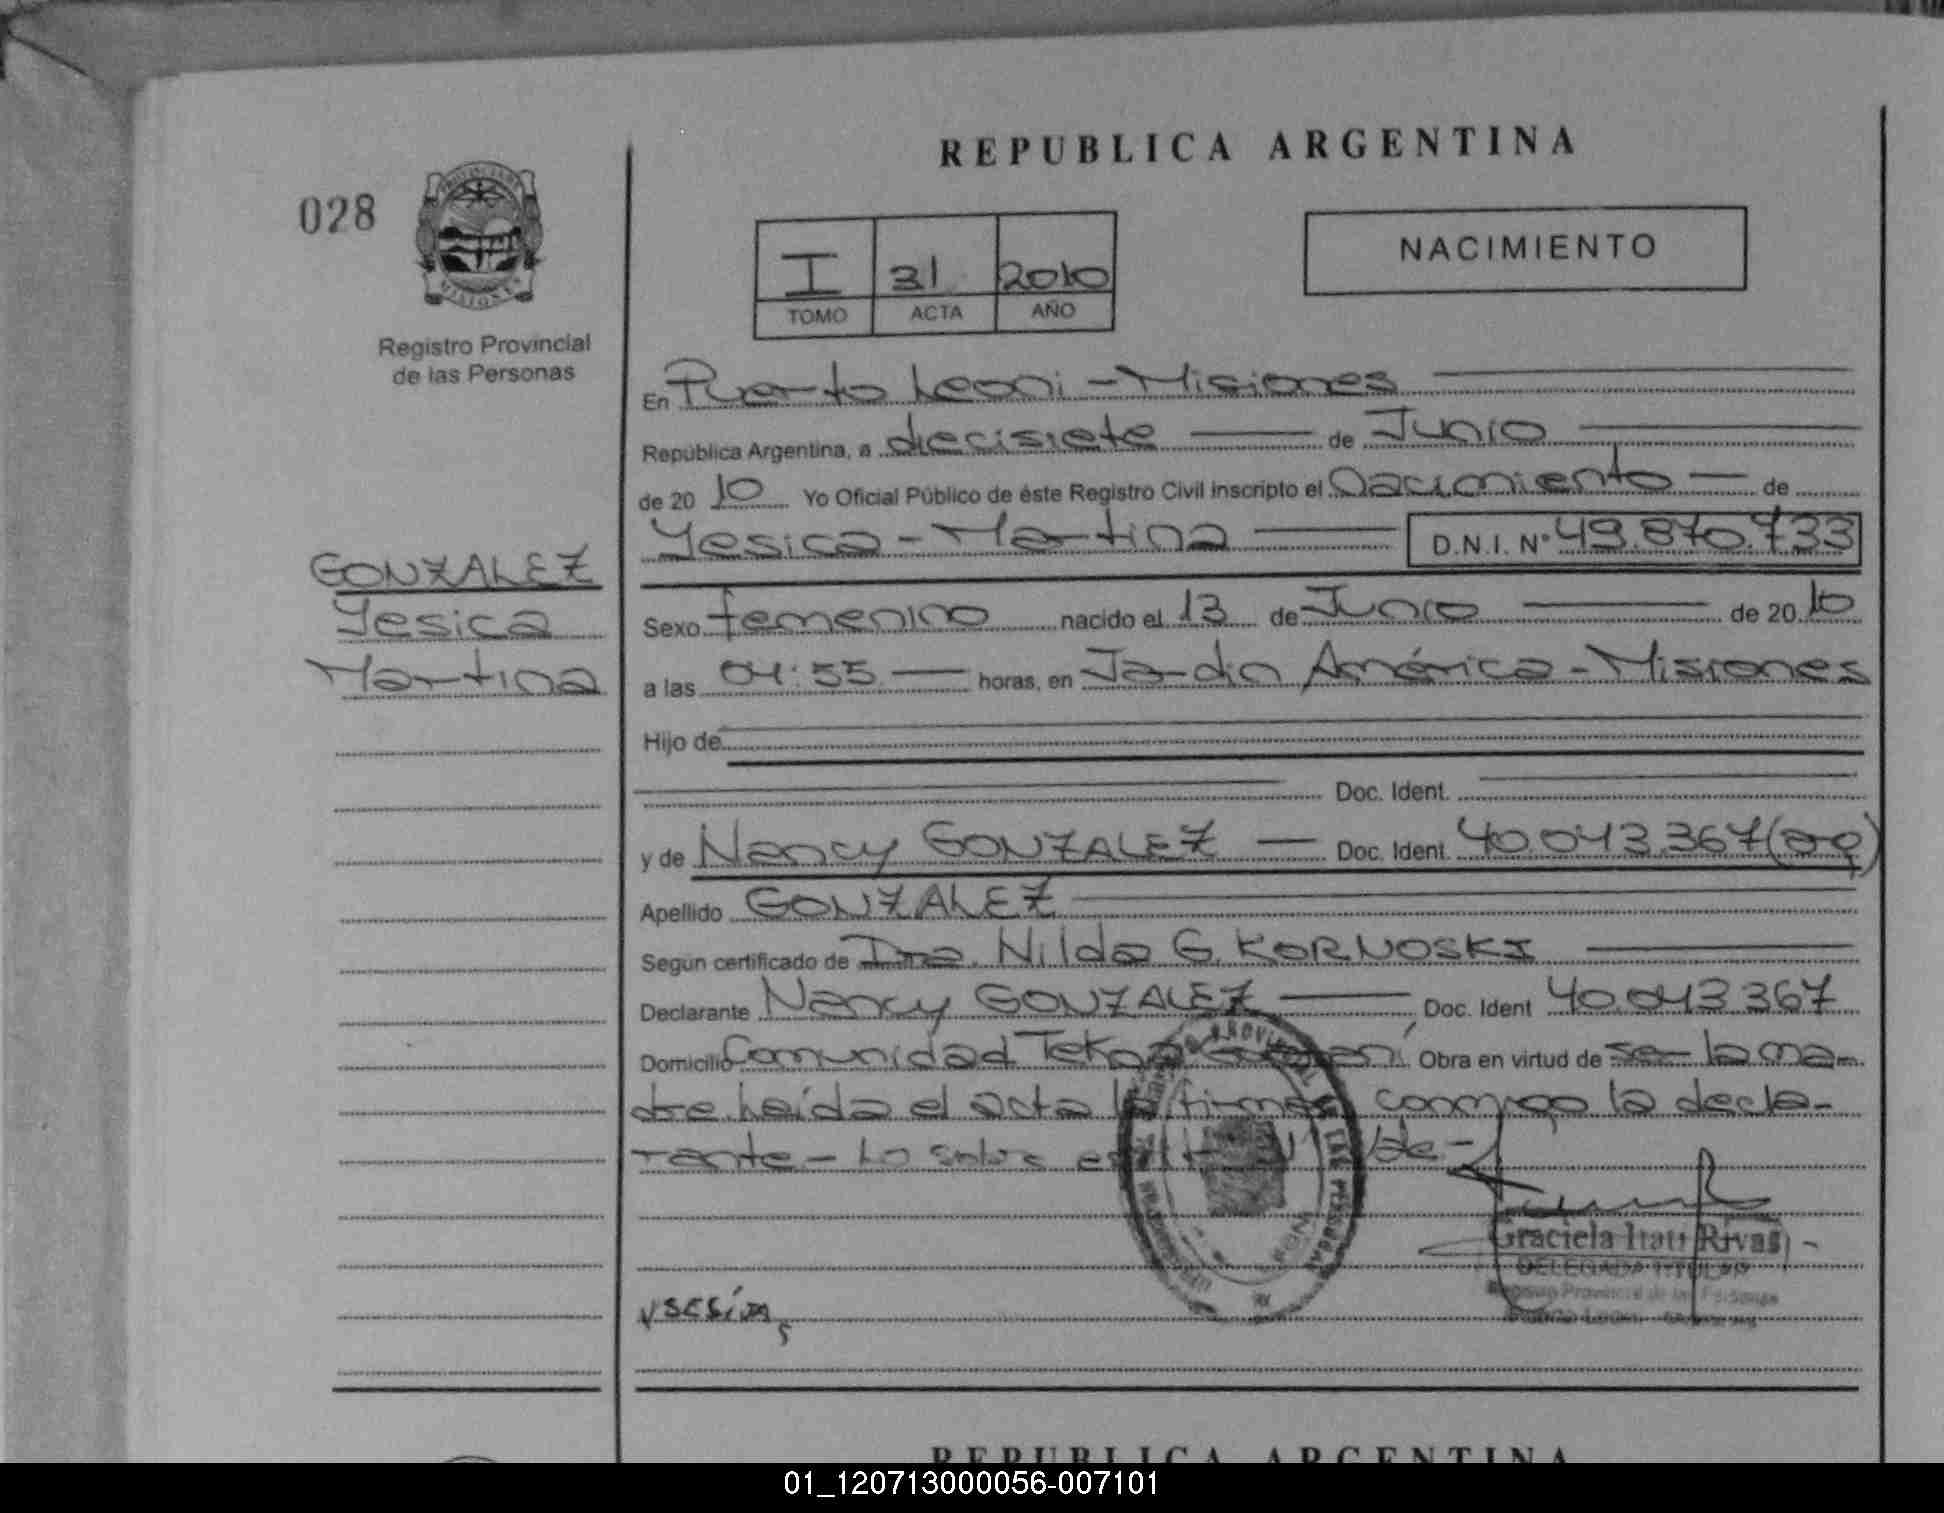 REPUBLICA ARGENTINA
028
PROVINCIA DE
MISIONES
Registro Provincial
de las Personas
I 31 2010
TOMO ACTA AÑO
NACIMIENTO
En Puerto Leoni - Misiones
República Argentina, a diecisiete de Junio
de 20 10 Yo Oficial Público de éste Registro Civil inscripto el Nacimiento de
Yesica - Martina D.N.I. N° 49.870.733
GONZALEZ
Yesica
Martina
Sexo femenino nacido el 13 de Junio de 20 10
a las 04:55 horas, en Jardín América - Misiones
Hijo de
Doc. Ident.
y de Nancy GONZALEZ Doc. Ident. 40.043.367 (arg)
Apellido GONZALEZ
Según certificado de Dra. Nilda G. KORNOSKI
Declarante Nancy GONZALEZ Doc. Ident 40.043.367
Domicilio Comunidad Tekoa Guaraní, Obra en virtud de ser la ma-
dre. Leída el acta la firma conmigo la decla-
rante - Lo sobre vale -
Graciela Itatí Rivas
DELEGADA TITULAR
Registro Provincial de las Personas
Puerto Leoni
REPUBLICA ARGENTINA
01_120713000056-007101